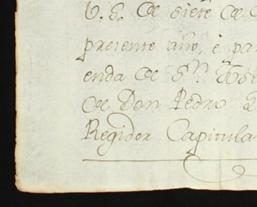 V. S. de siete de
presente año, é pa
enda de Sn.
de Don Pedro
Regidor Capitula